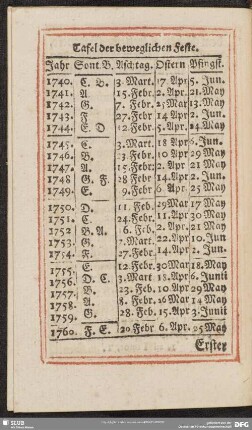 Tafel der beweglichen Feste.
Jahr Sont B. Aschtag. Ostern Pfingst.
1740. C. B. 2. Mart. 17 Apr 5. Jun.
1741. A. 15. Febr. 2. Apr. 21. May
1742. G. 7. Febr. 25 Mar 13. May
1743. F 27 Febr 14 Apr 2. Jun.
1744. E. D 12 Febr. 5. Apr. 24. May
1745. C. 3. Mart. 18 Apr 6. Jun.
1746. B. 23. Febr. 10 Apr 29 May
1747. A. 15. Febr. 2. Apr. 21 May
1748 G. F. 28 Febr. 14 Apr 2. Jun.
1749. E. 19. Febr 6. Apr 25 May
1750. D. 11. Febr. 29 Mar 17 May
1751. C. 24. Febr. 11. Apr. 30 May
1752 B. A. 16. Feb. 2. Apr. 21 May
1753. G. 7. Mart. 22. Apr. 10. Jun
1754. F. 27. Febr. 14. Apr 2. Jun.
1755. E. 12. Febr. 30 Mar 18. May
1756. D. C. 3. Mart 18 Apr. 6. Junii
1757. B. 23. Feb. 10 Apr 29 May
1758. A. 8. Febr. 26 Mar 14 May
1759. G. 28. Feb. 15. Apr 3. Junii
1760. F. E. 20 Febr 6. Apr. 25 May
Erster
SLUB